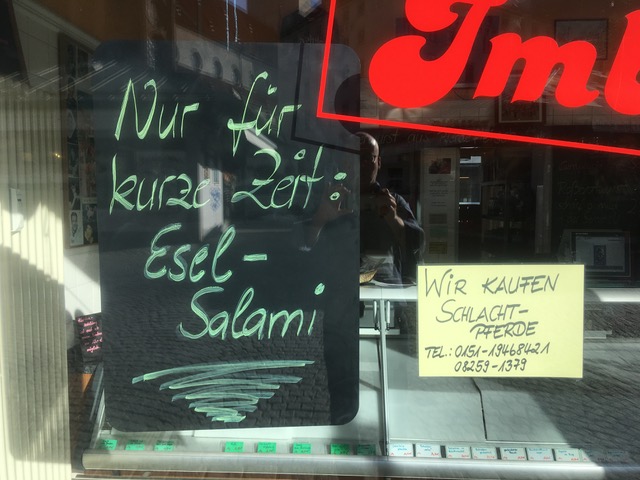 Nur für
kurze Zeit:
Esel-
Salami
Imb
WIR KAUFEN
SCHLACHT-
PFERDE
TEL.: 0151-19468421
08259-1379